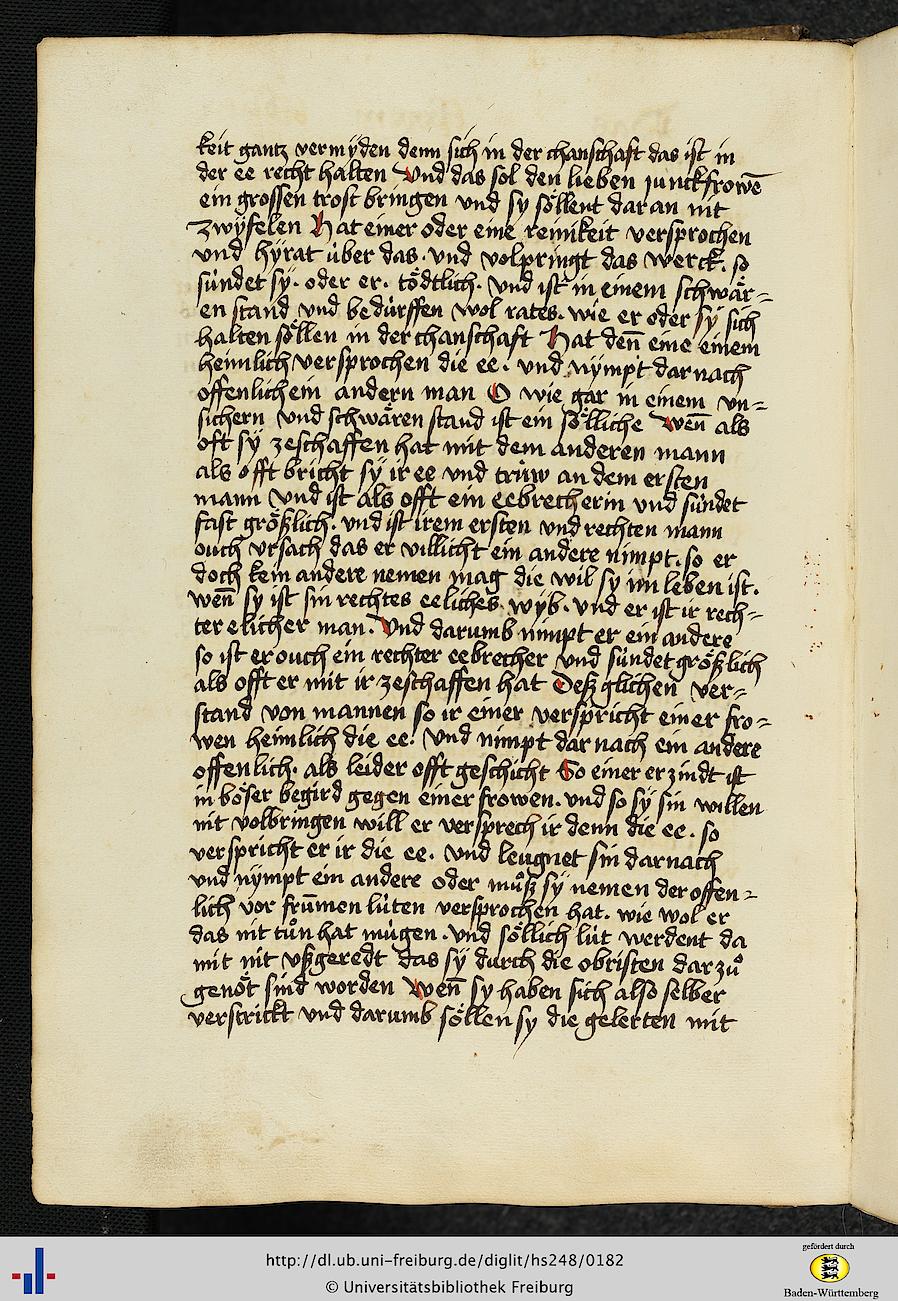 keit gantz vermÿden denn sich in der chanschaft das ist in
der ee recht halten Und das sol den lieben junckfrowē
ein grossen trost bringen und sy söllent dar an nit
zwÿfelen Hat einer oder eine reinikeit versprochen
und hÿrat über das. und volpringt das werck. so
sündet sy. oder er. tödtlich. und ist in einem schwär=
en stand und bedürffen wol rates. wie er oder sÿ sich
halten söllen in der chanschaft Hat den̄ eine einem
heimlich versprochen die ee. und nÿmpt dar nach
offenlich ein andern man O wie gar in einem vn=
sichern und schwären stand ist ein sölliche Wen̄ als
oft sÿ zeschaffen hat mit dem anderen mann
als offt bricht sÿ ir ee und trüw an dem ersten
mann Und ist als offt ein eebrecherin und sündet
fast größlich. und ist irem ersten und rechten mann
ouch vrsach das er villicht ein andere nimpt. so er
doch kein andere nemen mag die wil sy im leben ist.
wen̄ sy ist sin rechtes eeliches wÿb. und er ist ir rech=
ter elicher man. Und darumb nimpt er ein andere
so ist er ouch ein rechter eebrecher und sündet größlich
als offt er mit ir zeschaffen hat Deßglichen ver=
stand von mannen so ir einer verspricht einer fro=
wen heimlich die ee. Und nimpt dar nach ein andere
offenlich. als leider offt geschicht So einer erzindt ist
in böser begird gegen einer frowen. und so sÿ sin willen
nit volbringen will er versprech ir denn die ee. so
verspricht er ir die ee. und leugnet sin darnach
und nÿmpt ein andere oder můß sÿ nemen der offen=
lich vor frumen lüten versprochen hat. wie wol er
das nit tůn hat mügen. und söllich lüt werdent da
mit nit vßgeredt das sÿ durch die obristen dar zů
genöt sind worden Wen̄ sy haben sich also selber
verstrickt und darumb söllen sy die gelerten mit
http://dl.ub.uni-freiburg.de/diglit/hs248/0182
© Universitätsbibliothek Freiburg
gefördert durch
Baden-Württemberg